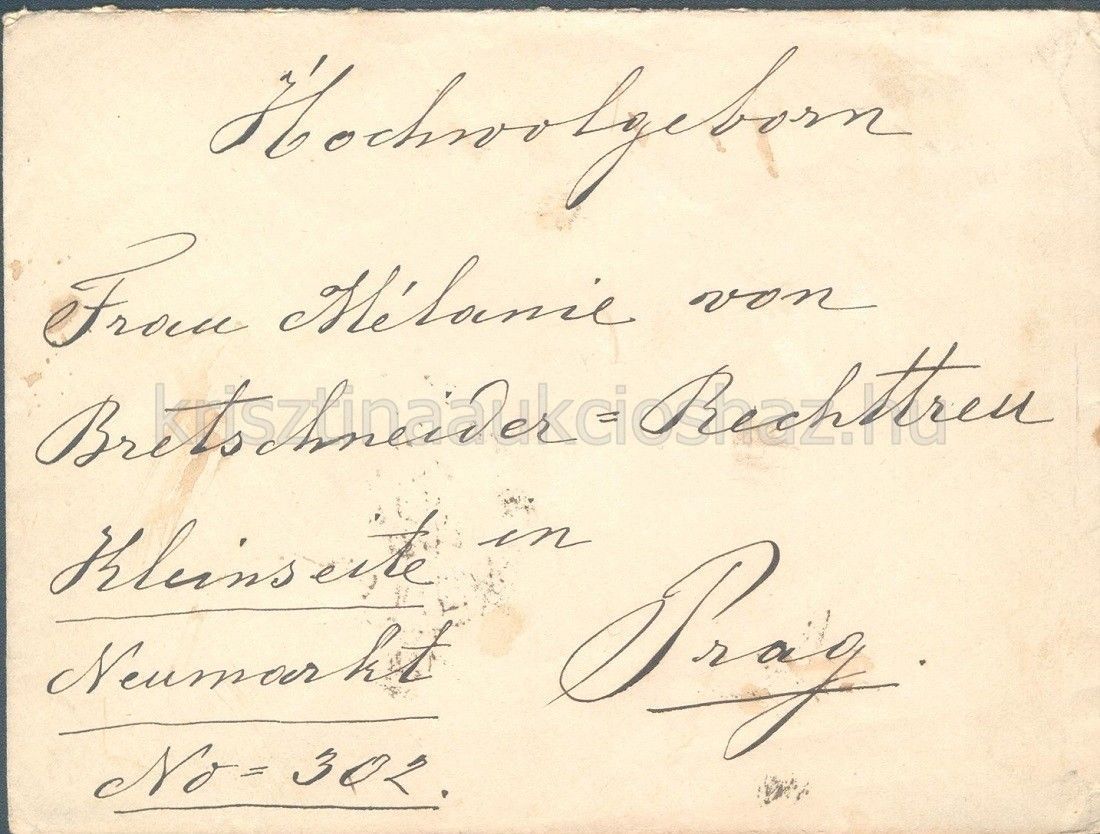 Hochwolgeborn
Frau Mélanie von
Bretschneider = Rechttreu
krisztinaaukcioshaz.hu
Kleinseite in
Neumarkt Prag.
No = 302.